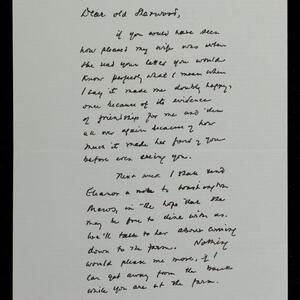 Dear old
if you could have seen
how pleased my wife was when
she read your letter you would
know perfectly what I mean when
I say it made me doubly happy,
once because of its evidence
of friendship for me and then
all over again because of how
much it made her fond of you
before even seeing you.
Next week I shall send
Eleanor a note to Washington
in the hope that she
may be free to dine with us.
We'll talk to her about coming
down to the farm. Nothing
would please me more, if I
can get away from the
while you are at the farm.